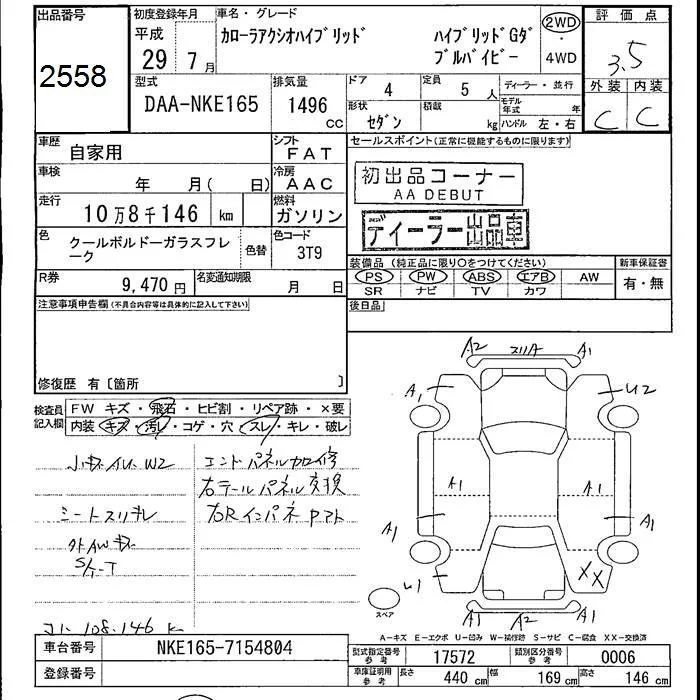 出品番号
2558
初度登録年月
平成
29年 7月
車名・グレード
カローラアクシオハイブリッド
ハイブリッドGダブルバイビー
2WD
・
4WD
評価点
3.5
外装 内装
C C
型式
DAA-NKE165
排気量
1496
CC
ドア
4
定員
5人
形状
セダン
積載
kg
ディーラー・並行
モデル年式 年
ハンドル 左・右
車歴
自家用
シフト
FAT
車検
年 月( 日)
冷房
AAC
走行
10万8千146 km
燃料
ガソリン
色
クールボルドーガラスフレーク
色替
色コード
3T9
R券
9,470円
名変通知期限
月 日
セールスポイント(正常に機能するものに限ります)
初出品コーナー
AA DEBUT
ディーラー出品車
装備品(純正品に限り○をつけてください)
新車保証書
PS PW ABS エアB AW
SR ナビ TV カワ
有・無
後日品
注意事項申告欄(不具合内容等は具体的に記入して下さい)
修復歴 有〔箇所 〕
検査員記入欄
FW キズ・飛石・ヒビ割・リペア跡・×要
内装 キズ・汚レ・コゲ・穴・スレ・キレ・破レ
エンドパネル加修
右テールパネル交換
シートスリキレ
右Rインパネ
外AWキズ
108.146 K
A2 スリA A1
A1 U2
A1 A1
A1 A1
U1 XX
スペア
A1 A2 A1
A-キズ E-エクボ U-凹み W-補修跡 S-サビ C-腐食 XX-交換済
車台番号
NKE165-7154804
登録番号
型式指定番号 参考
17572
類別区分番号 参考
0006
車庫証明用 参考
長さ 440 cm
幅 169 cm
高さ 146 cm